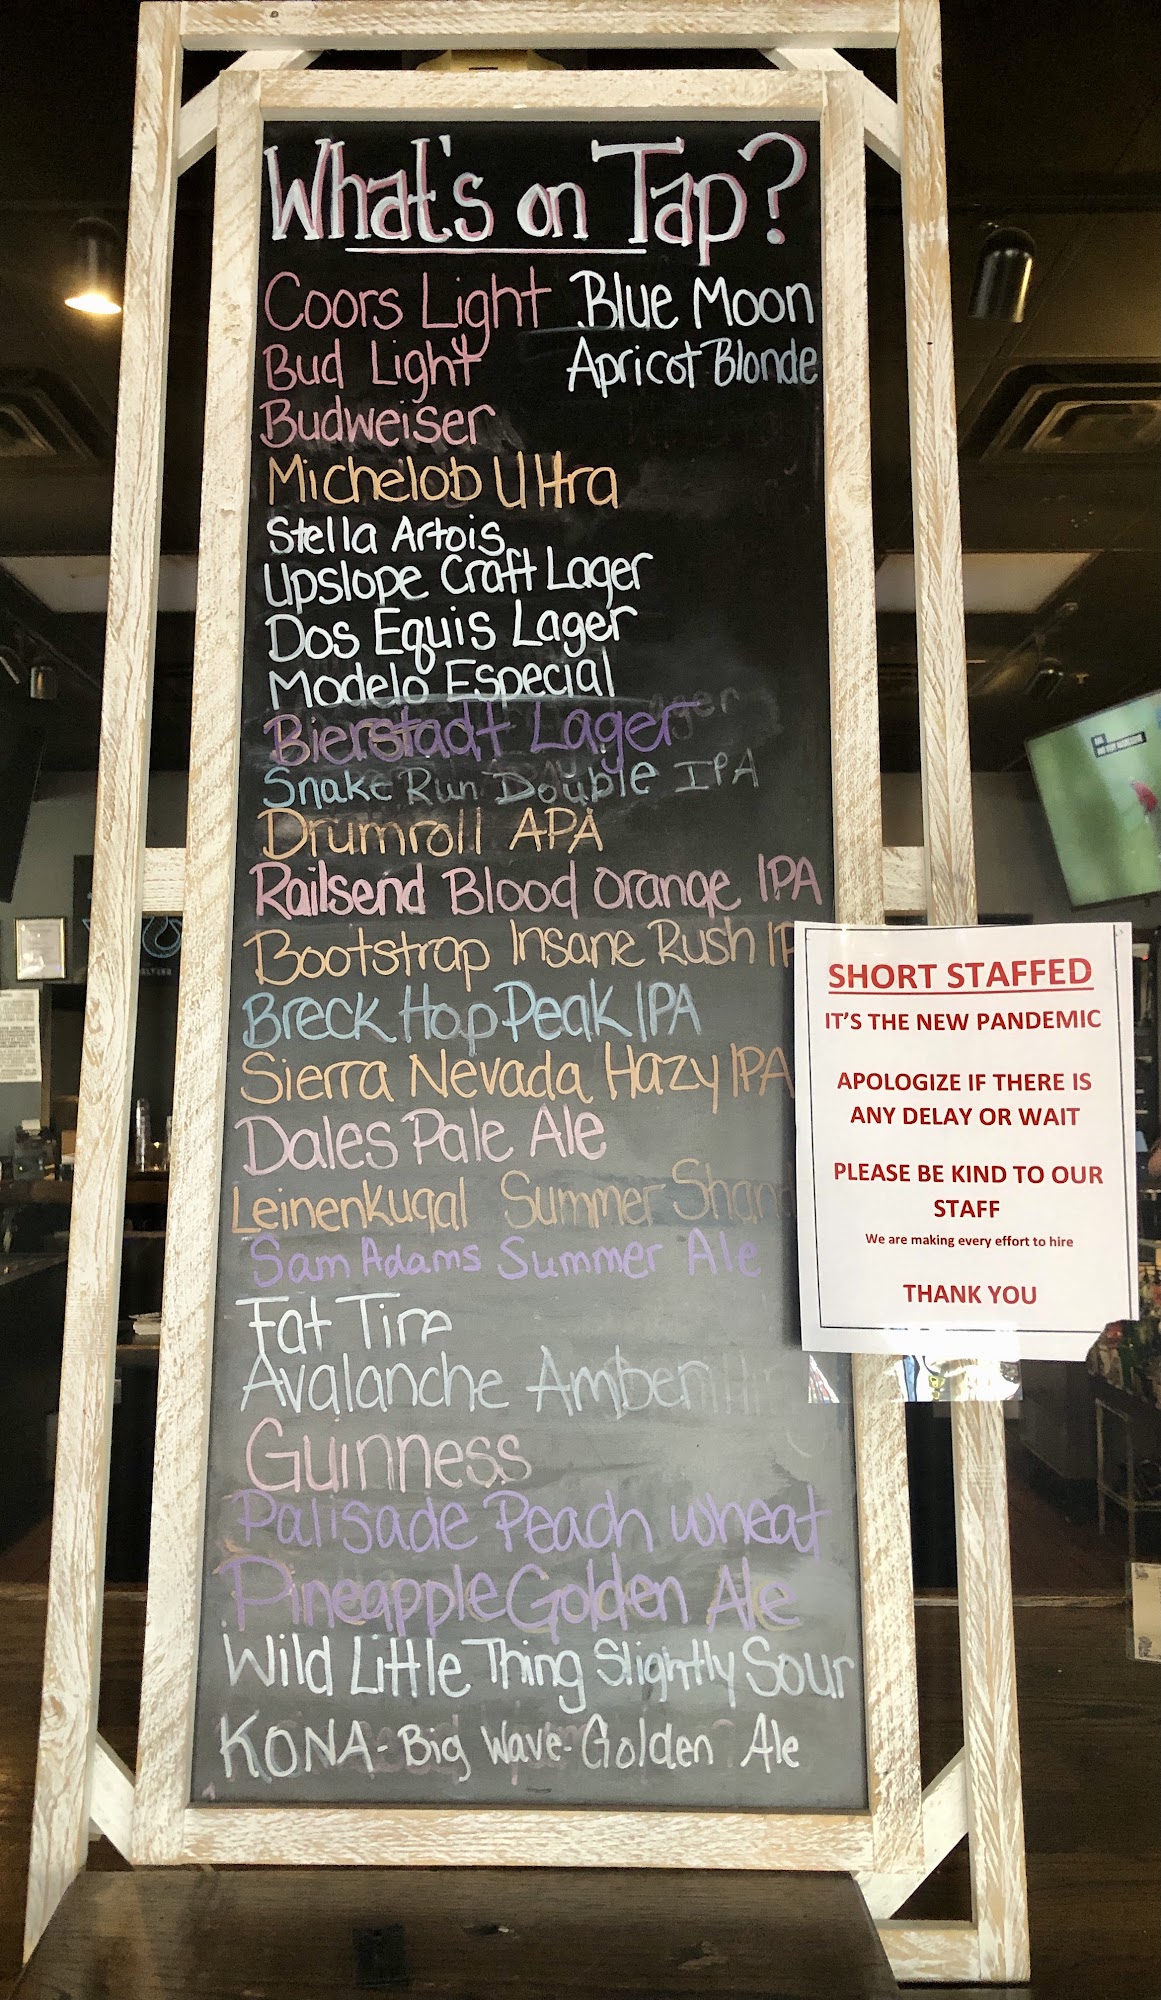 What's on Tap?
Coors Light Blue Moon
Bud Light Apricot Blonde
Budweiser
Michelob Ultra
Stella Artois
Upslope Craft Lager
Dos Equis Lager
Modelo Especial
Bierstadt Lager
Snake Run Double IPA
Drumroll APA
Railsend Blood Orange IPA
Bootstrap Insane Rush IP
Breck Hop Peak IPA
Sierra Nevada Hazy IPA
Dales Pale Ale
Leinenkugal Summer Shan
Sam Adams Summer Ale
Fat Tire
Avalanche Amber
Guinness
Palisade Peach Wheat
Pineapple Golden Ale
Wild Little Thing Slightly Sour
KONA - Big Wave - Golden Ale
SHORT STAFFED
IT'S THE NEW PANDEMIC
APOLOGIZE IF THERE IS
ANY DELAY OR WAIT
PLEASE BE KIND TO OUR
STAFF
We are making every effort to hire
THANK YOU